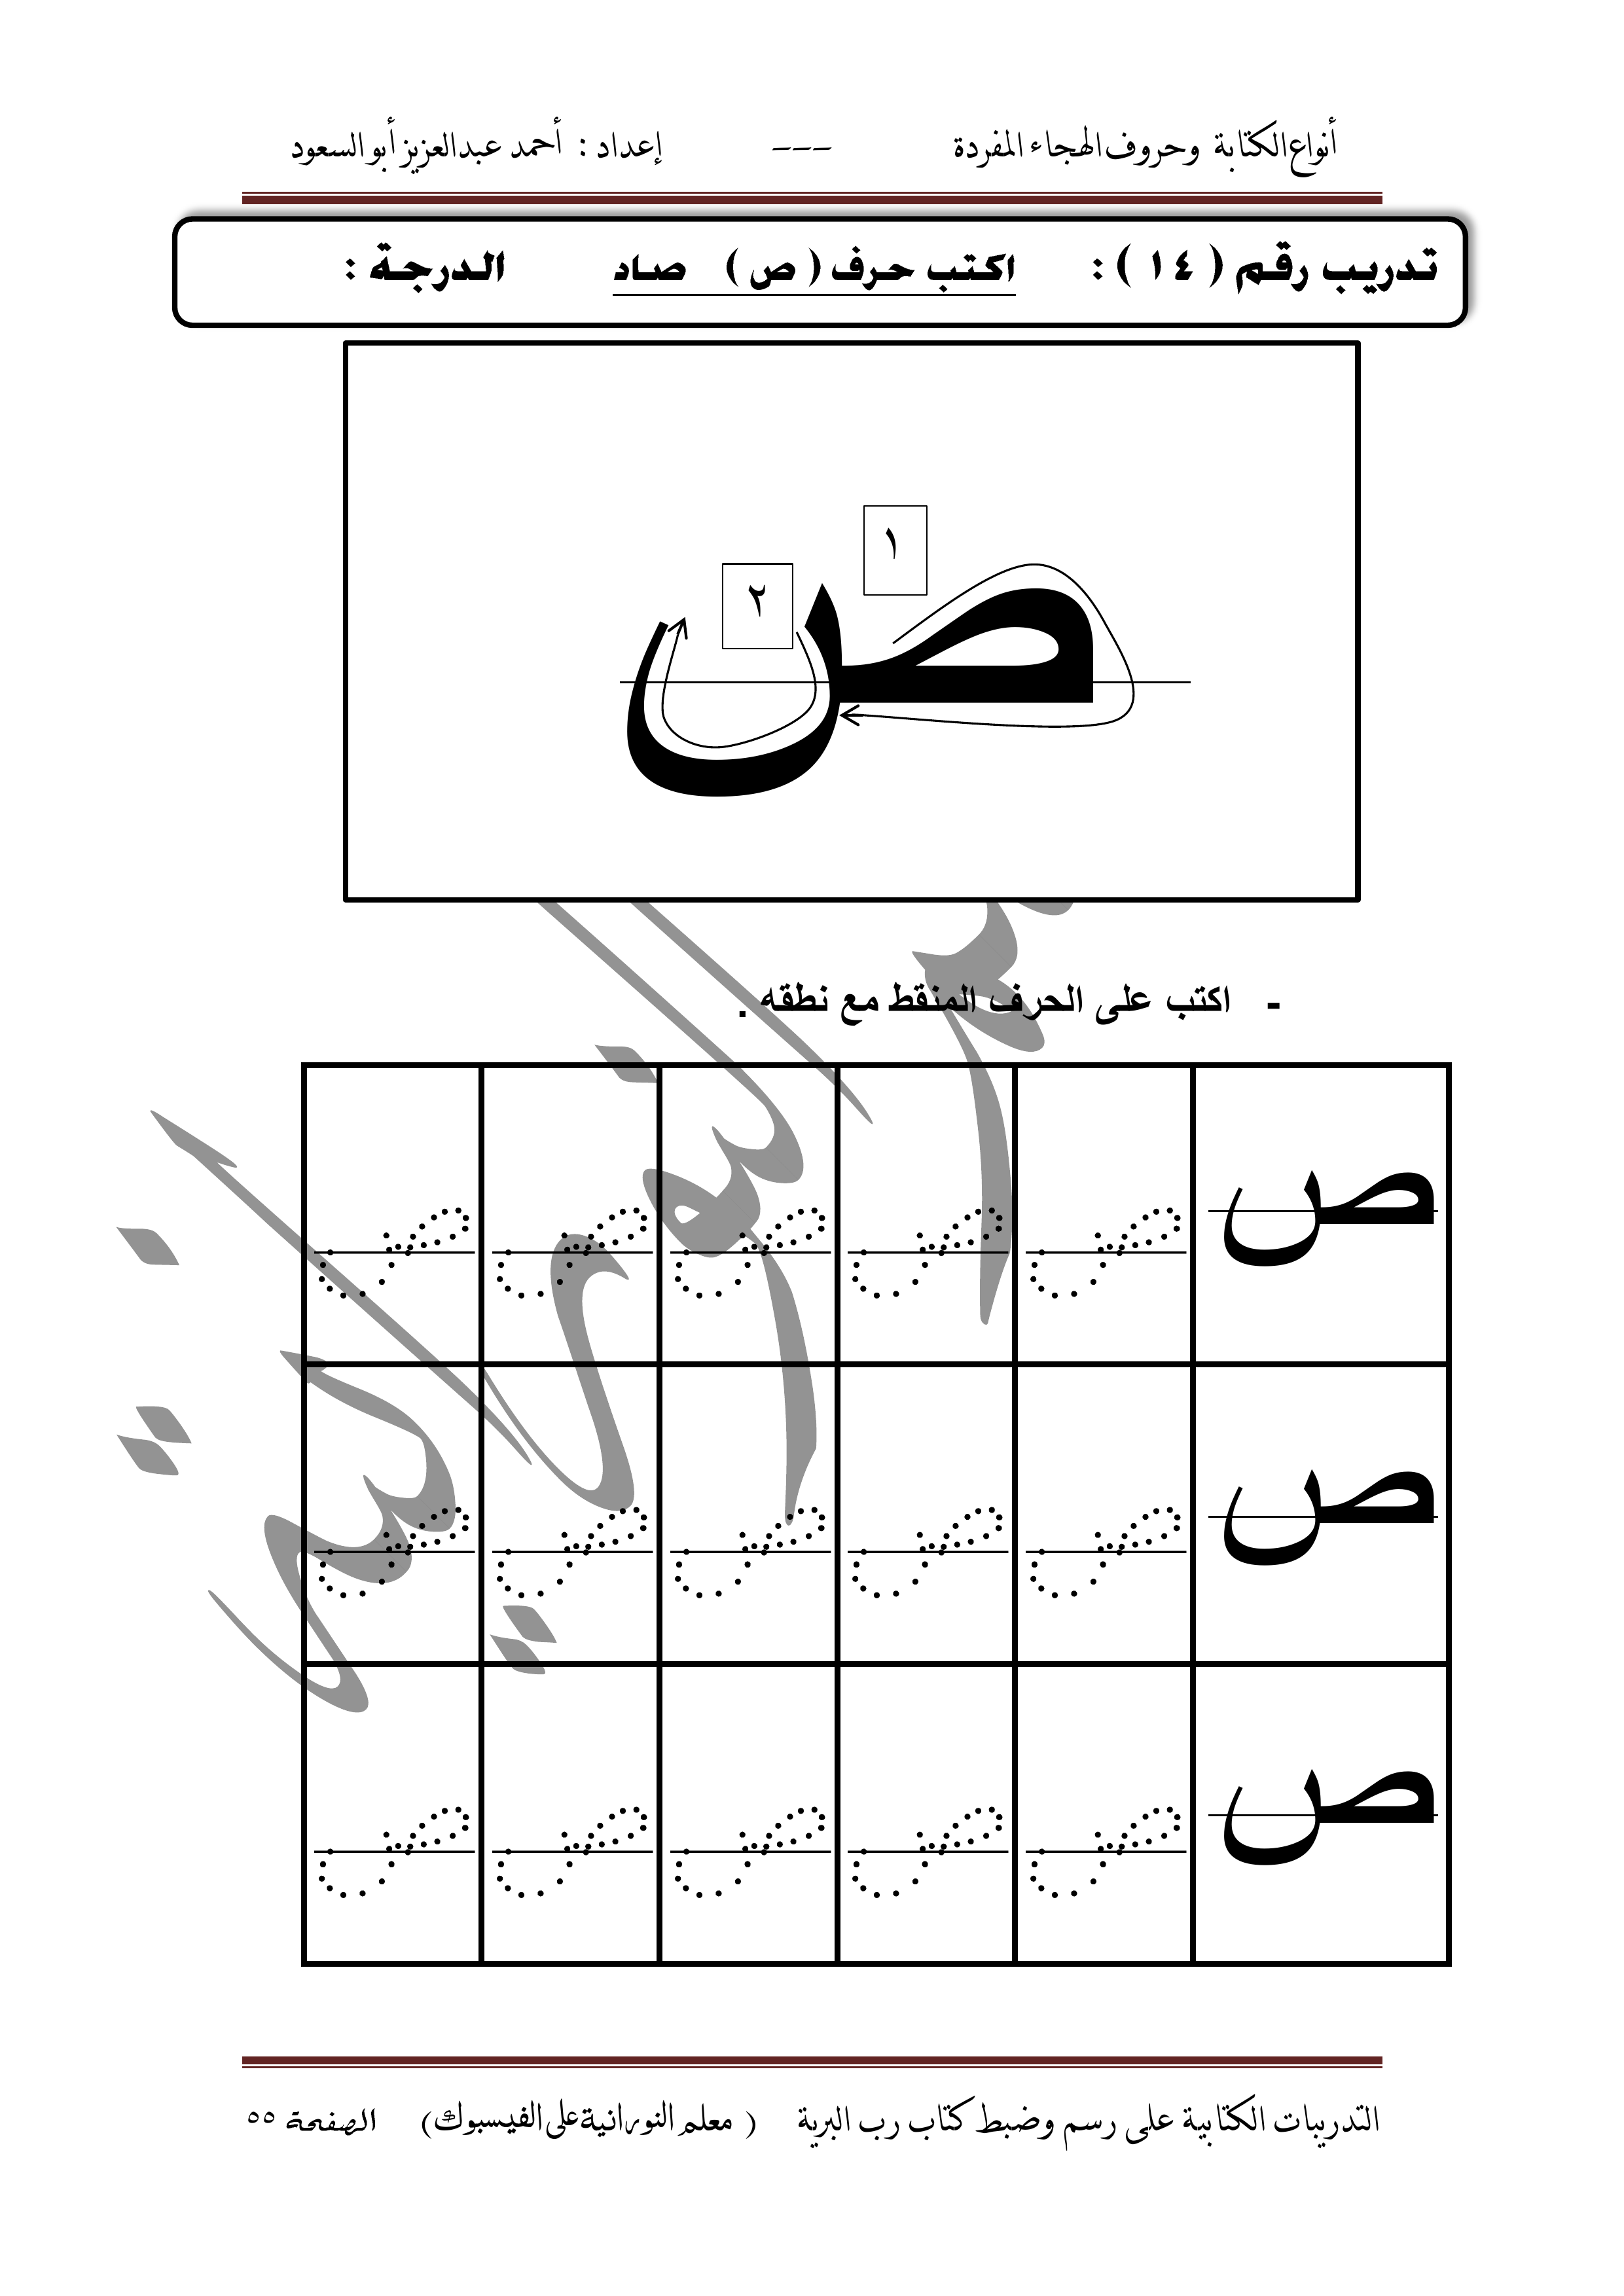 أنواع الكتابة وحروف الهجاء المفردة --- إعداد : أحمد عبدالعزيز أبو السعود
تدريب رقم ( ١٤ ) : اكتب حرف ( ص ) صاد الدرجة :
١
٢
ص
- اكتب على الحرف المنقط مع نطقه .
ص ص ص ص ص ص
ص ص ص ص ص ص
ص ص ص ص ص ص
التدريبات الكتابية على رسم وضبط كتاب رب البرية ( معلم النورانية على الفيسبوك) الصفحة ٥٥